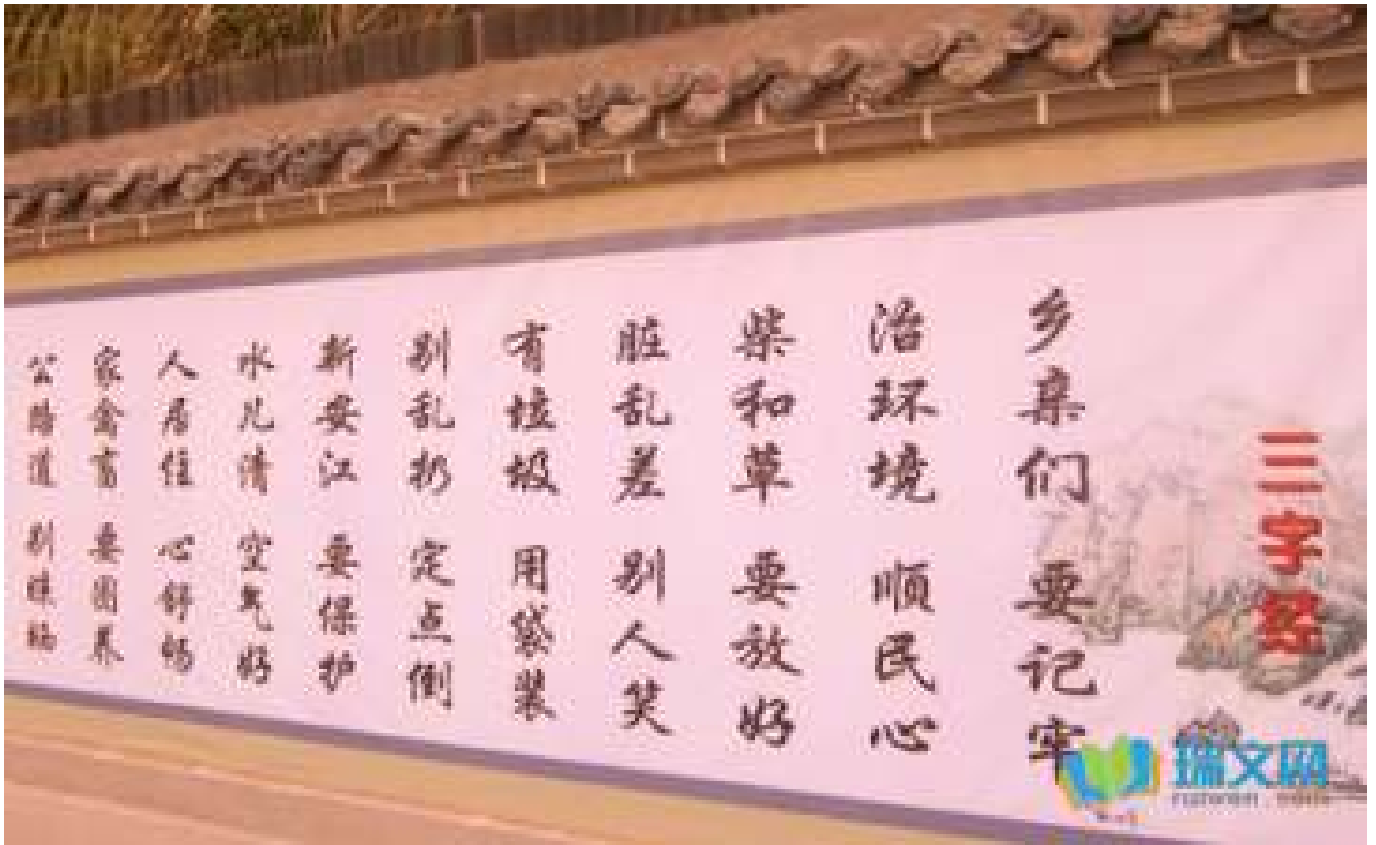 三字经
乡亲们 要记牢
治环境 顺民心
柴和草 要放好
脏乱差 别人笑
有垃圾 用袋装
别乱扔 定点倒
新安江 要保护
水儿清 空气好
人居住 心舒畅
家禽畜 要圈养
公路道 别
瑞文网